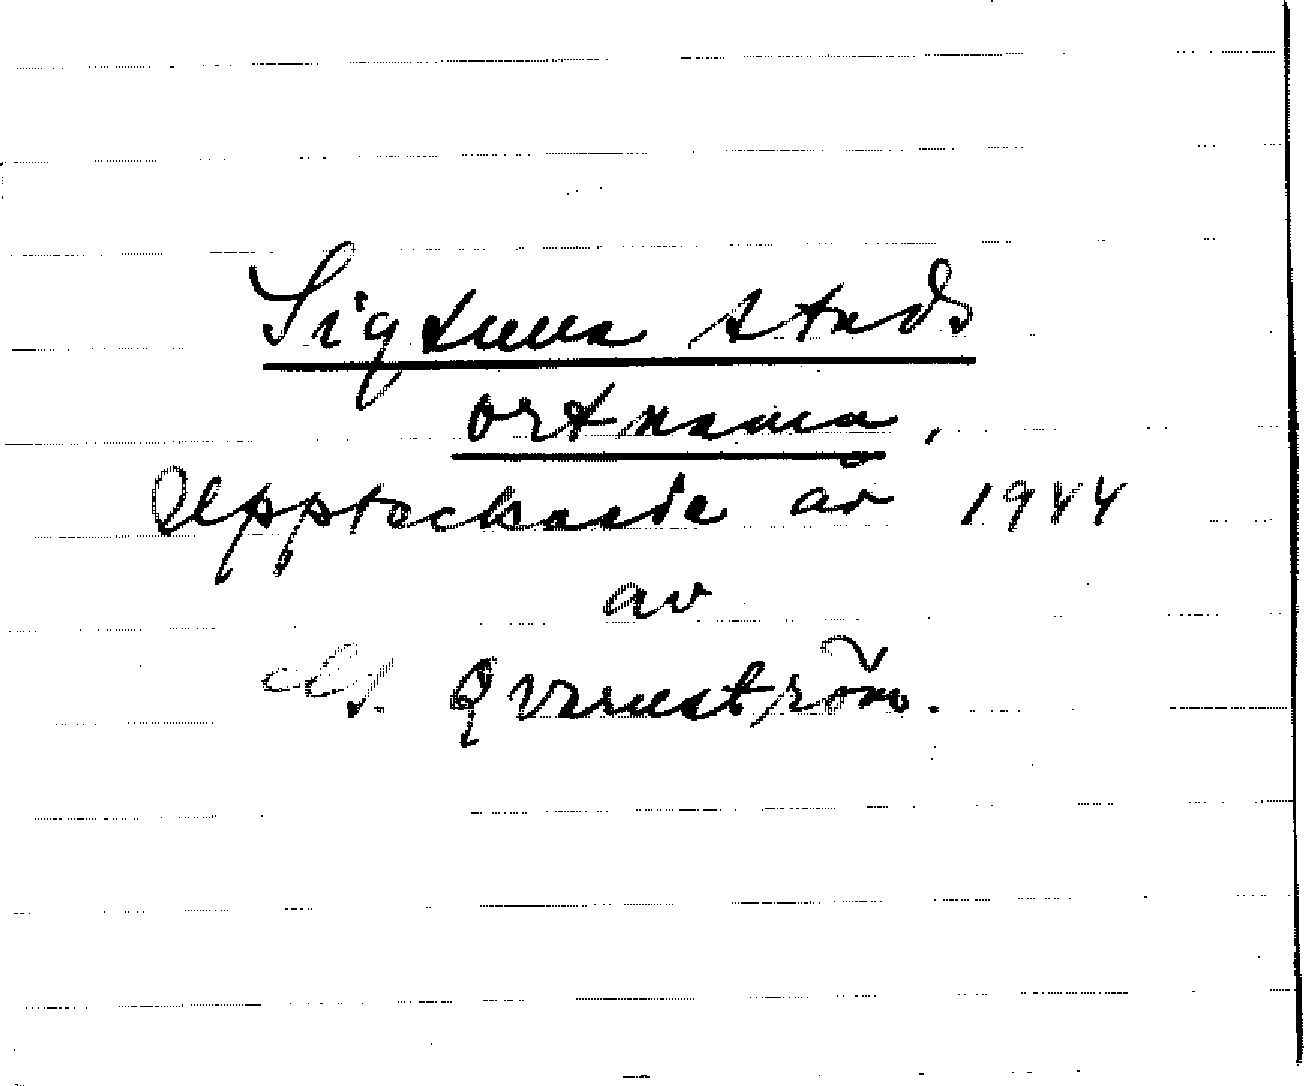 Sigtuna stads
ortnamn,
Upptecknade år 1944
av
Qvarnström.